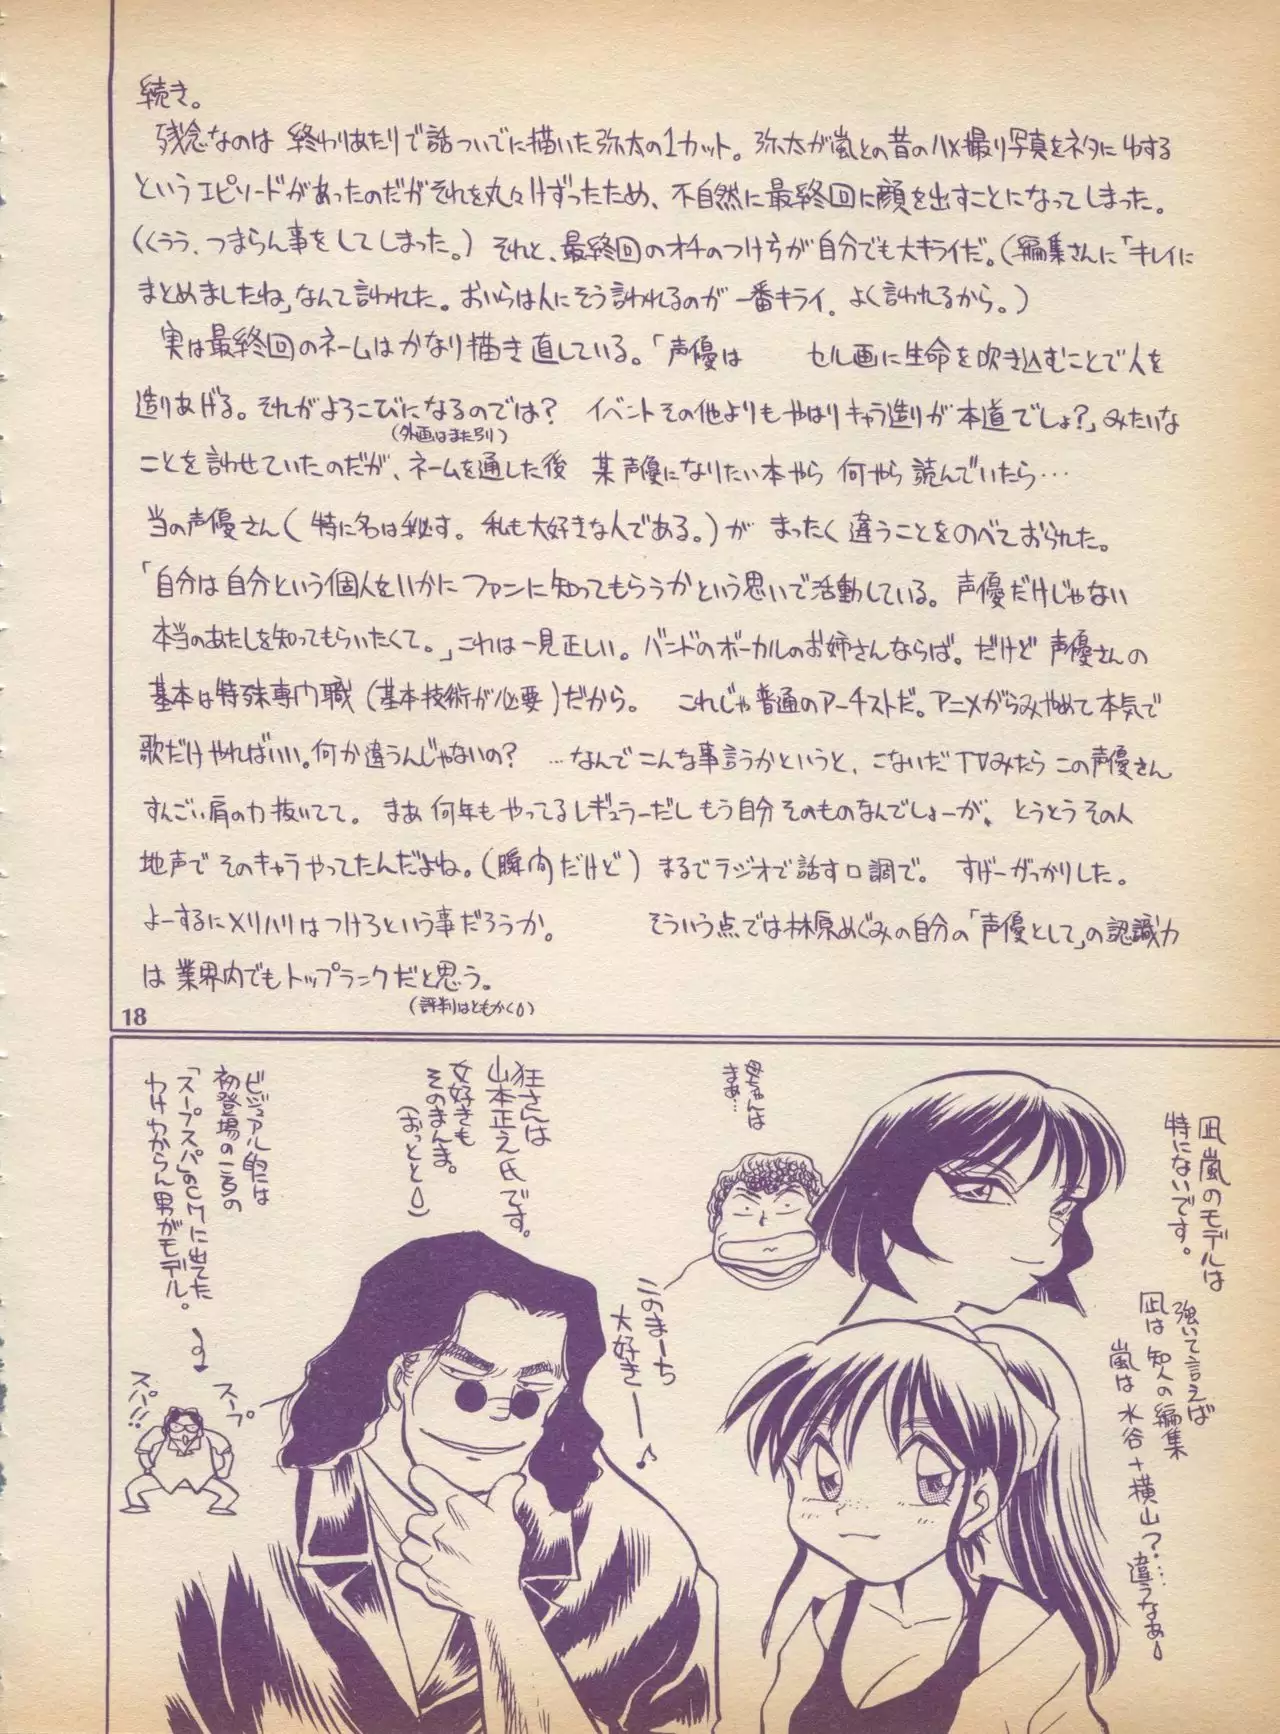 続き。
残念なのは 終わりあたりで話ついでに描いた弥太の1カット。弥太が嵐との昔のハメ撮り写真をネタにゆする
というエピソードがあったのだがそれを丸々けずったため、不自然に最終回に顔を出すことになってしまった。
(くうう、つまらん事をしてしまった。) それと、最終回のオチのつけ方が自分でも大キライだ。(編集さんに「キレイに
まとめましたね」なんて言われた。おいらは人にそう言われるのが 一番キライ。よく言われるから。)
実は最終回のネームはかなり描き直している。「声優は セル画に生命を吹き込むことで人を
造りあげる。それがよろこびになるのでは? イベントその他よりもやはりキャラ造りが本道でしょ?」みたいな
(外画はまた別)
ことを言わせていたのだが、ネームを通した後 某声優になりたい本やら 何やら 読んでいたら…
当の声優さん(特に名は秘す。私も大好きな人である。)が まったく違うことをのべておられた。
「自分は自分という個人をいかに ファンに知ってもらうかという思いで活動している。声優だけじゃない
本当のあたしを知ってもらいたくて。」これは一見正しい。バンドのボーカルのお姉さんならば。だけど 声優さんの
基本は特殊専門職(基本技術が必要)だから。 これじゃ普通のアーチストだ。アニメがらみやめて本気で
歌だけやればいい。何か違うんじゃないの? …なんでこんな事言うかというと、こないだTVみたら この声優さん
すんごい肩の力抜いてて。まあ何年もやってるレギュラーだしもう自分そのものなんでしょーが、とうとうその人
地声でそのキャラやってたんだよね。(瞬間だけど) まるでラジオで話す口調で。 すげーがっかりした。
よーするにメリハリはつけろという事だろうか。 そういう点では林原めぐみの自分の「声優として」の認識力
は業界内でもトップランクだと思う。
(評判はともかく)
18
凪嵐のモデルは
特にないです。
強いて言えば
凪は 知人の編集
嵐は 水谷+横山?…
違うなあ
母ちゃんは
まあ…
このまーち
大好きー♪
狂さんは
山本正之氏です。
女好きも
そのまんま。
(おっとと)
ビジュアル的には
初登場の一言の
「スープスパ」のCMに出てた
わけわからん男がモデル。
スープ
スパ!!